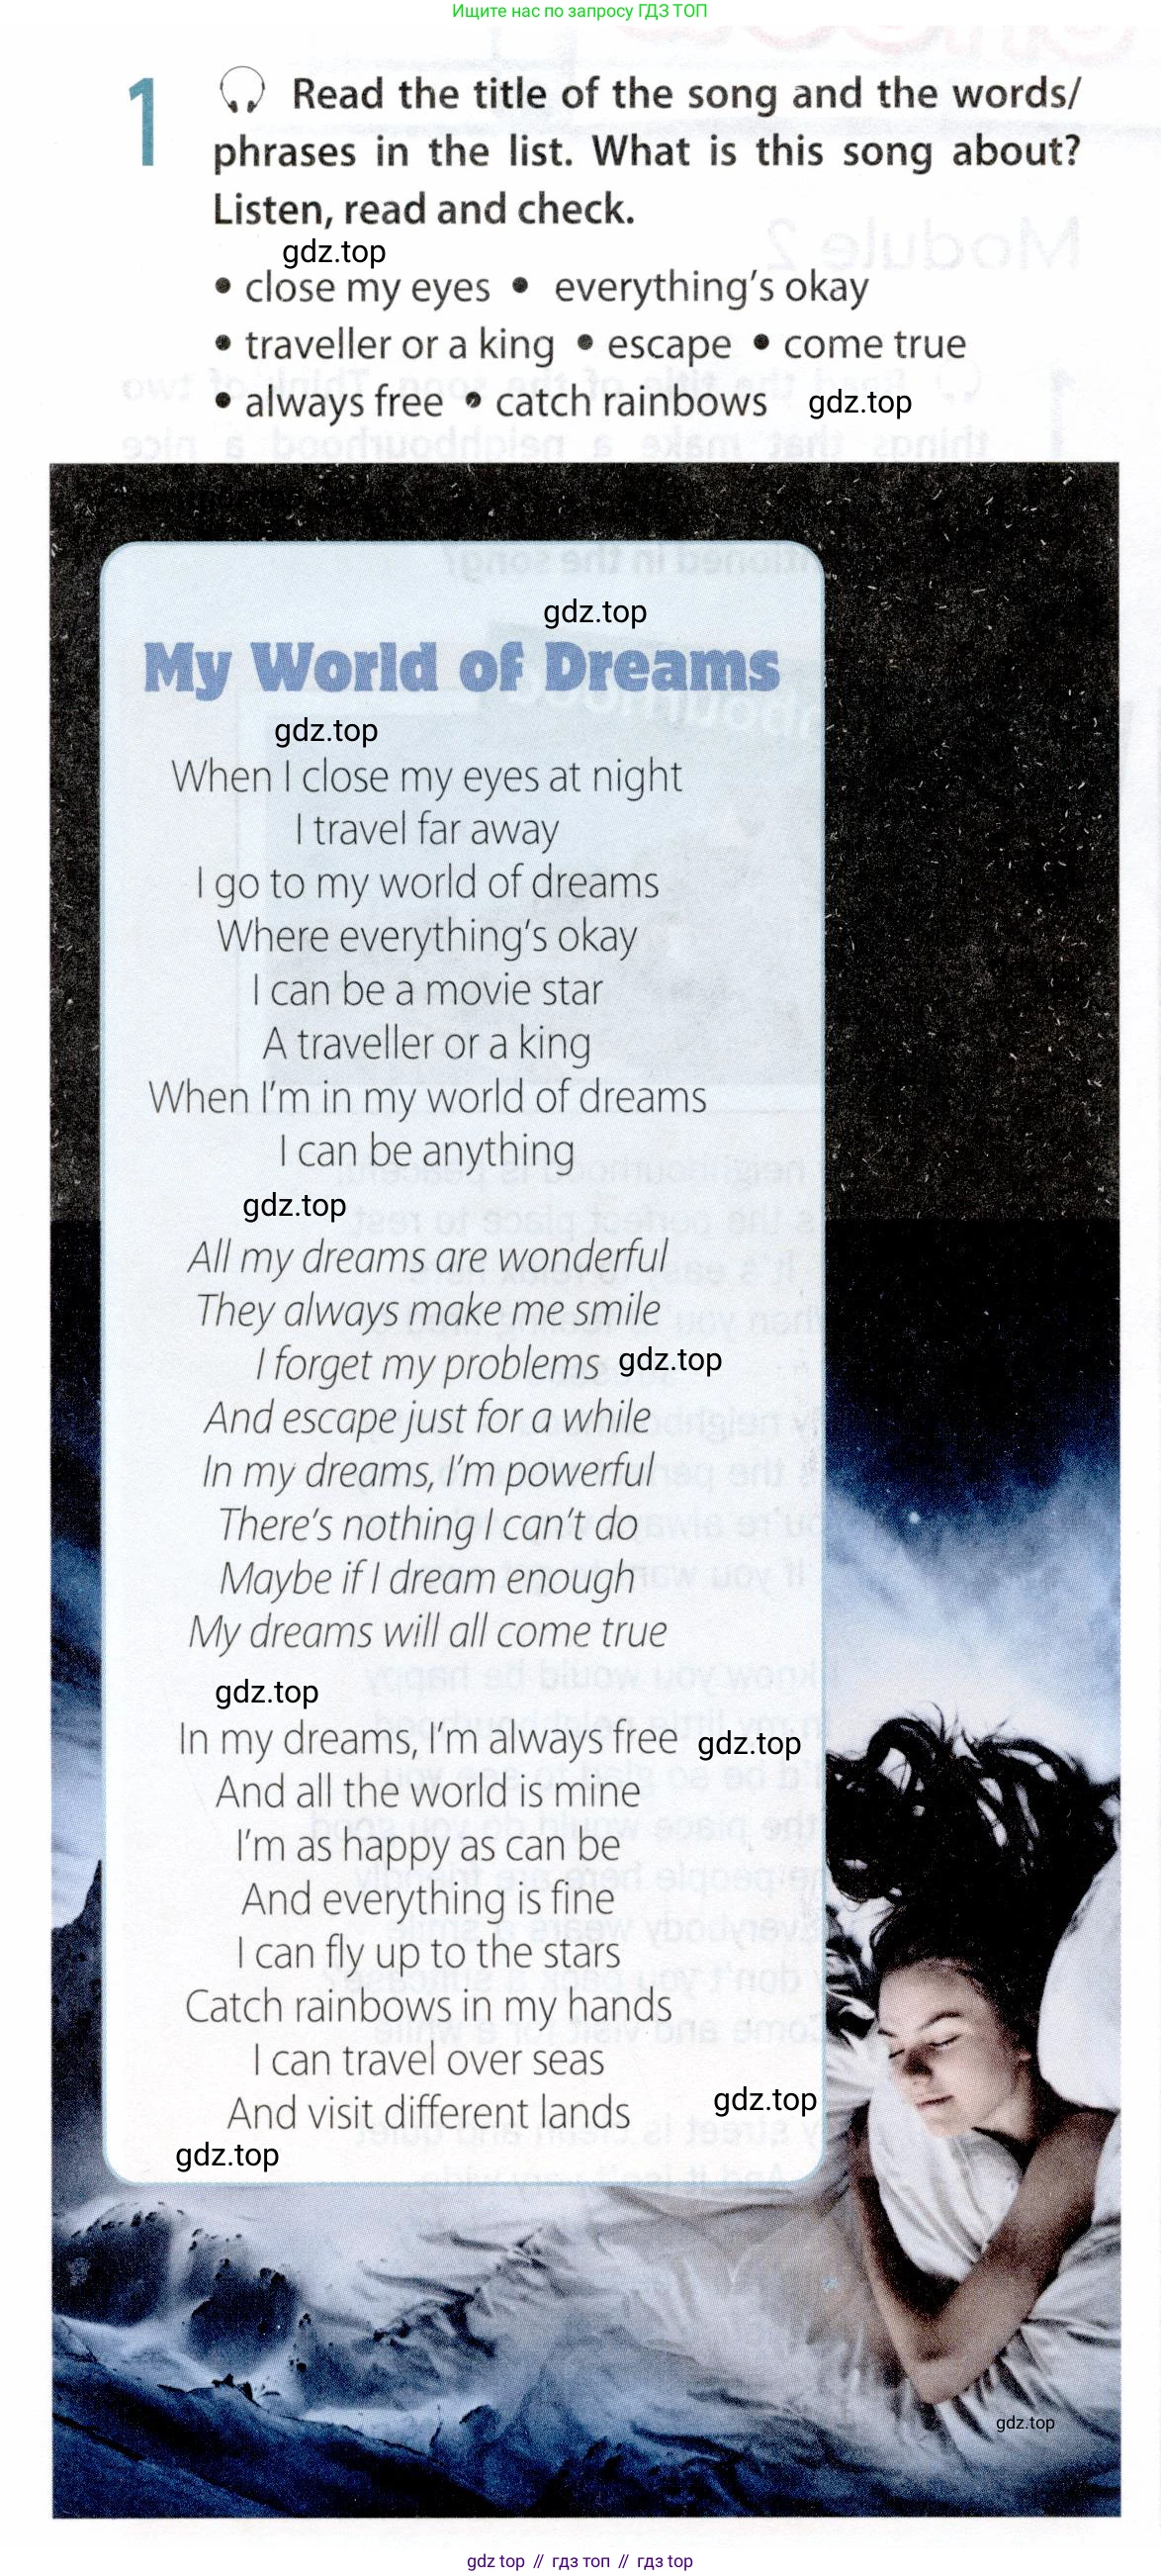 Ищите нас по запросу ГДЗ ТОП
1 Read the title of the song and the words/
phrases in the list. What is this song about?
Listen, read and check.
gdz.top
• close my eyes • everything's okay
• traveller or a king • escape • come true
• always free • catch rainbows gdz.top
gdz.top
My World of Dreams
gdz.top
When I close my eyes at night
I travel far away
I go to my world of dreams
Where everything's okay
I can be a movie star
A traveller or a king
When I'm in my world of dreams
I can be anything
gdz.top
All my dreams are wonderful
They always make me smile
I forget my problems gdz.top
And escape just for a while
In my dreams, I'm powerful
There's nothing I can't do
Maybe if I dream enough
My dreams will all come true
gdz.top
In my dreams, I'm always free gdz.top
And all the world is mine
I'm as happy as can be
And everything is fine
I can fly up to the stars
Catch rainbows in my hands
I can travel over seas
And visit different lands gdz.top
gdz.top
gdz.top
gdz top // гдз топ // гдз top